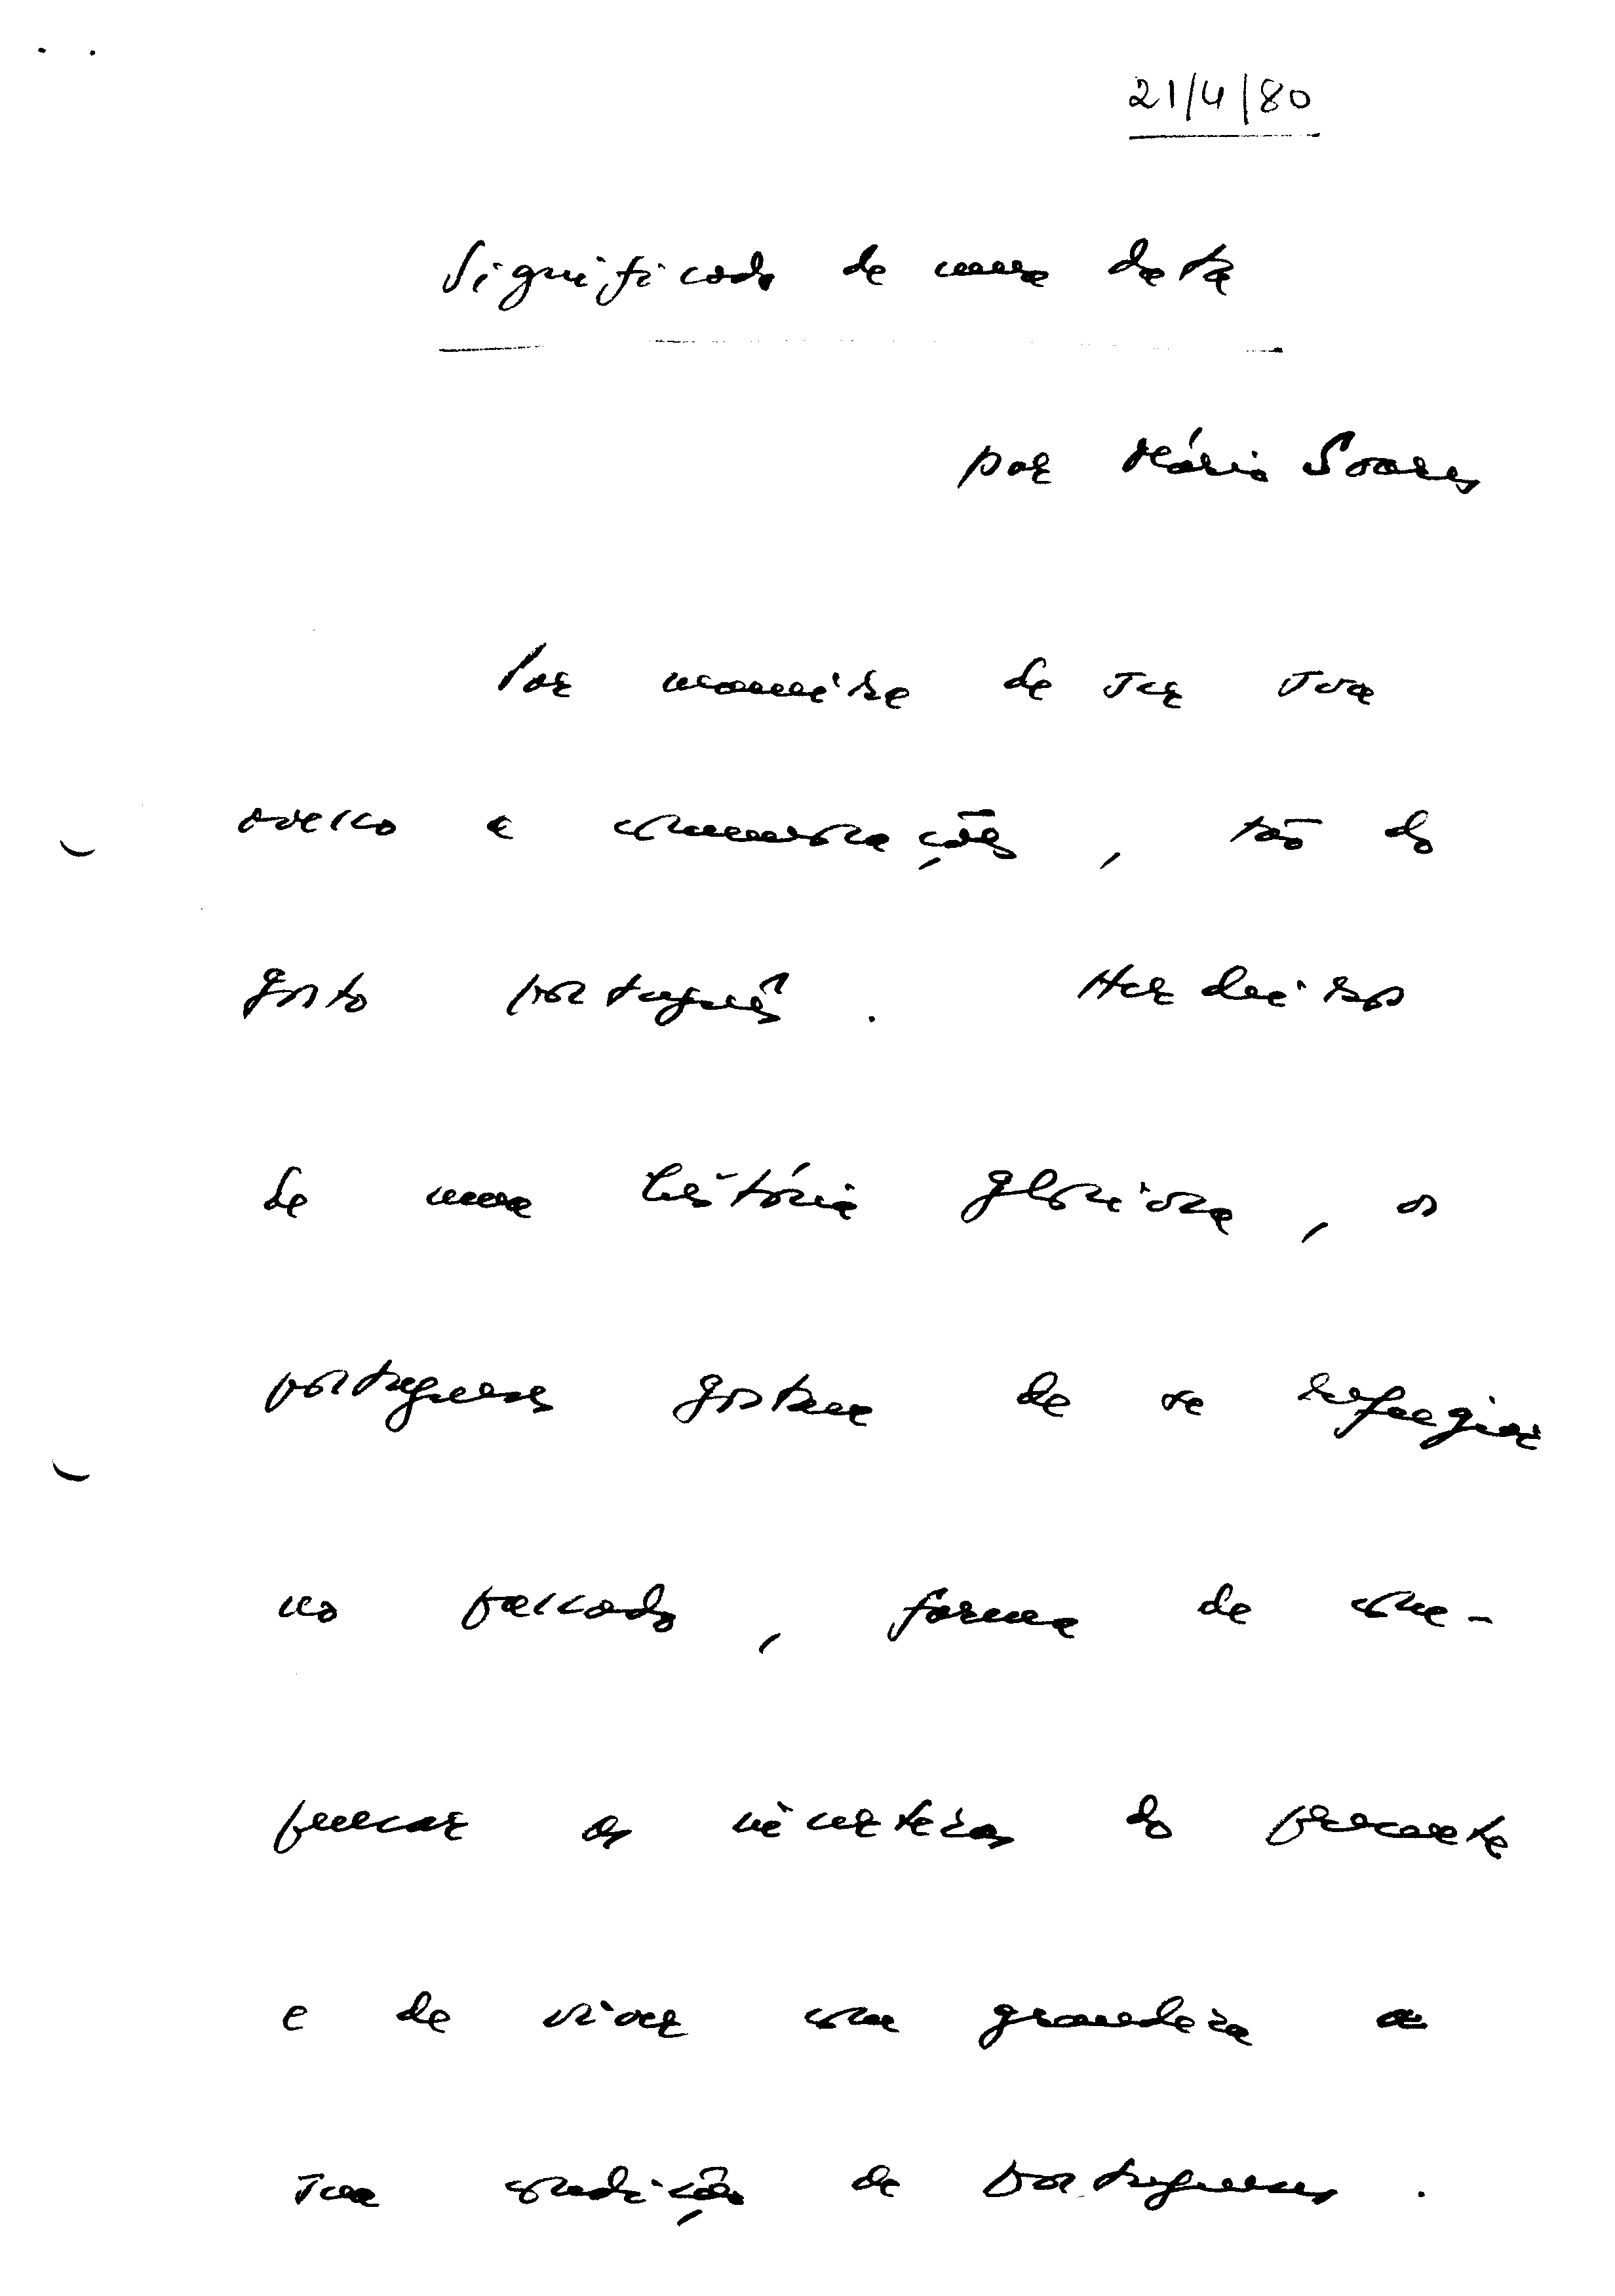 21/4/80
Significado de uma data
por Mário Soares
Por maneira de ser sou
avesso a comemorações, tão do
gosto português. Herdeiros
de uma história gloriosa, os
portugueses gostam de se refugiar
no passado, forma de com-
pensar as incertezas do presente
e de viver com grandeza a
sua condição de portugueses.